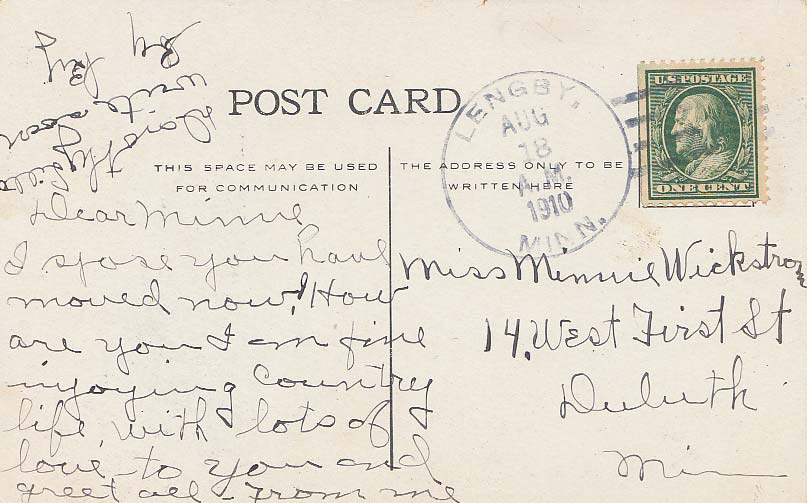 POST CARD
THIS SPACE MAY BE USED
FOR COMMUNICATION
THE ADDRESS ONLY TO BE
WRITTEN HERE
LENGBY,
AUG
18
A.M.
1910
MINN.
U.S. POSTAGE
ONE CENT
Dear Minnie
I spose you have
moved now! How
are you I am fine
injoying Country
life, with lots of
love to you and
greet all - From me
write soon
By By
Miss Minnie Wickstrom
14. West First St
Duluth
Minn